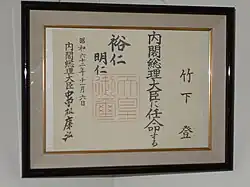 竹下 登
内閣総理大臣に任命する
裕仁
明仁
天皇御璽
昭和六十二年十一月六日
内閣総理大臣 中曽根康弘